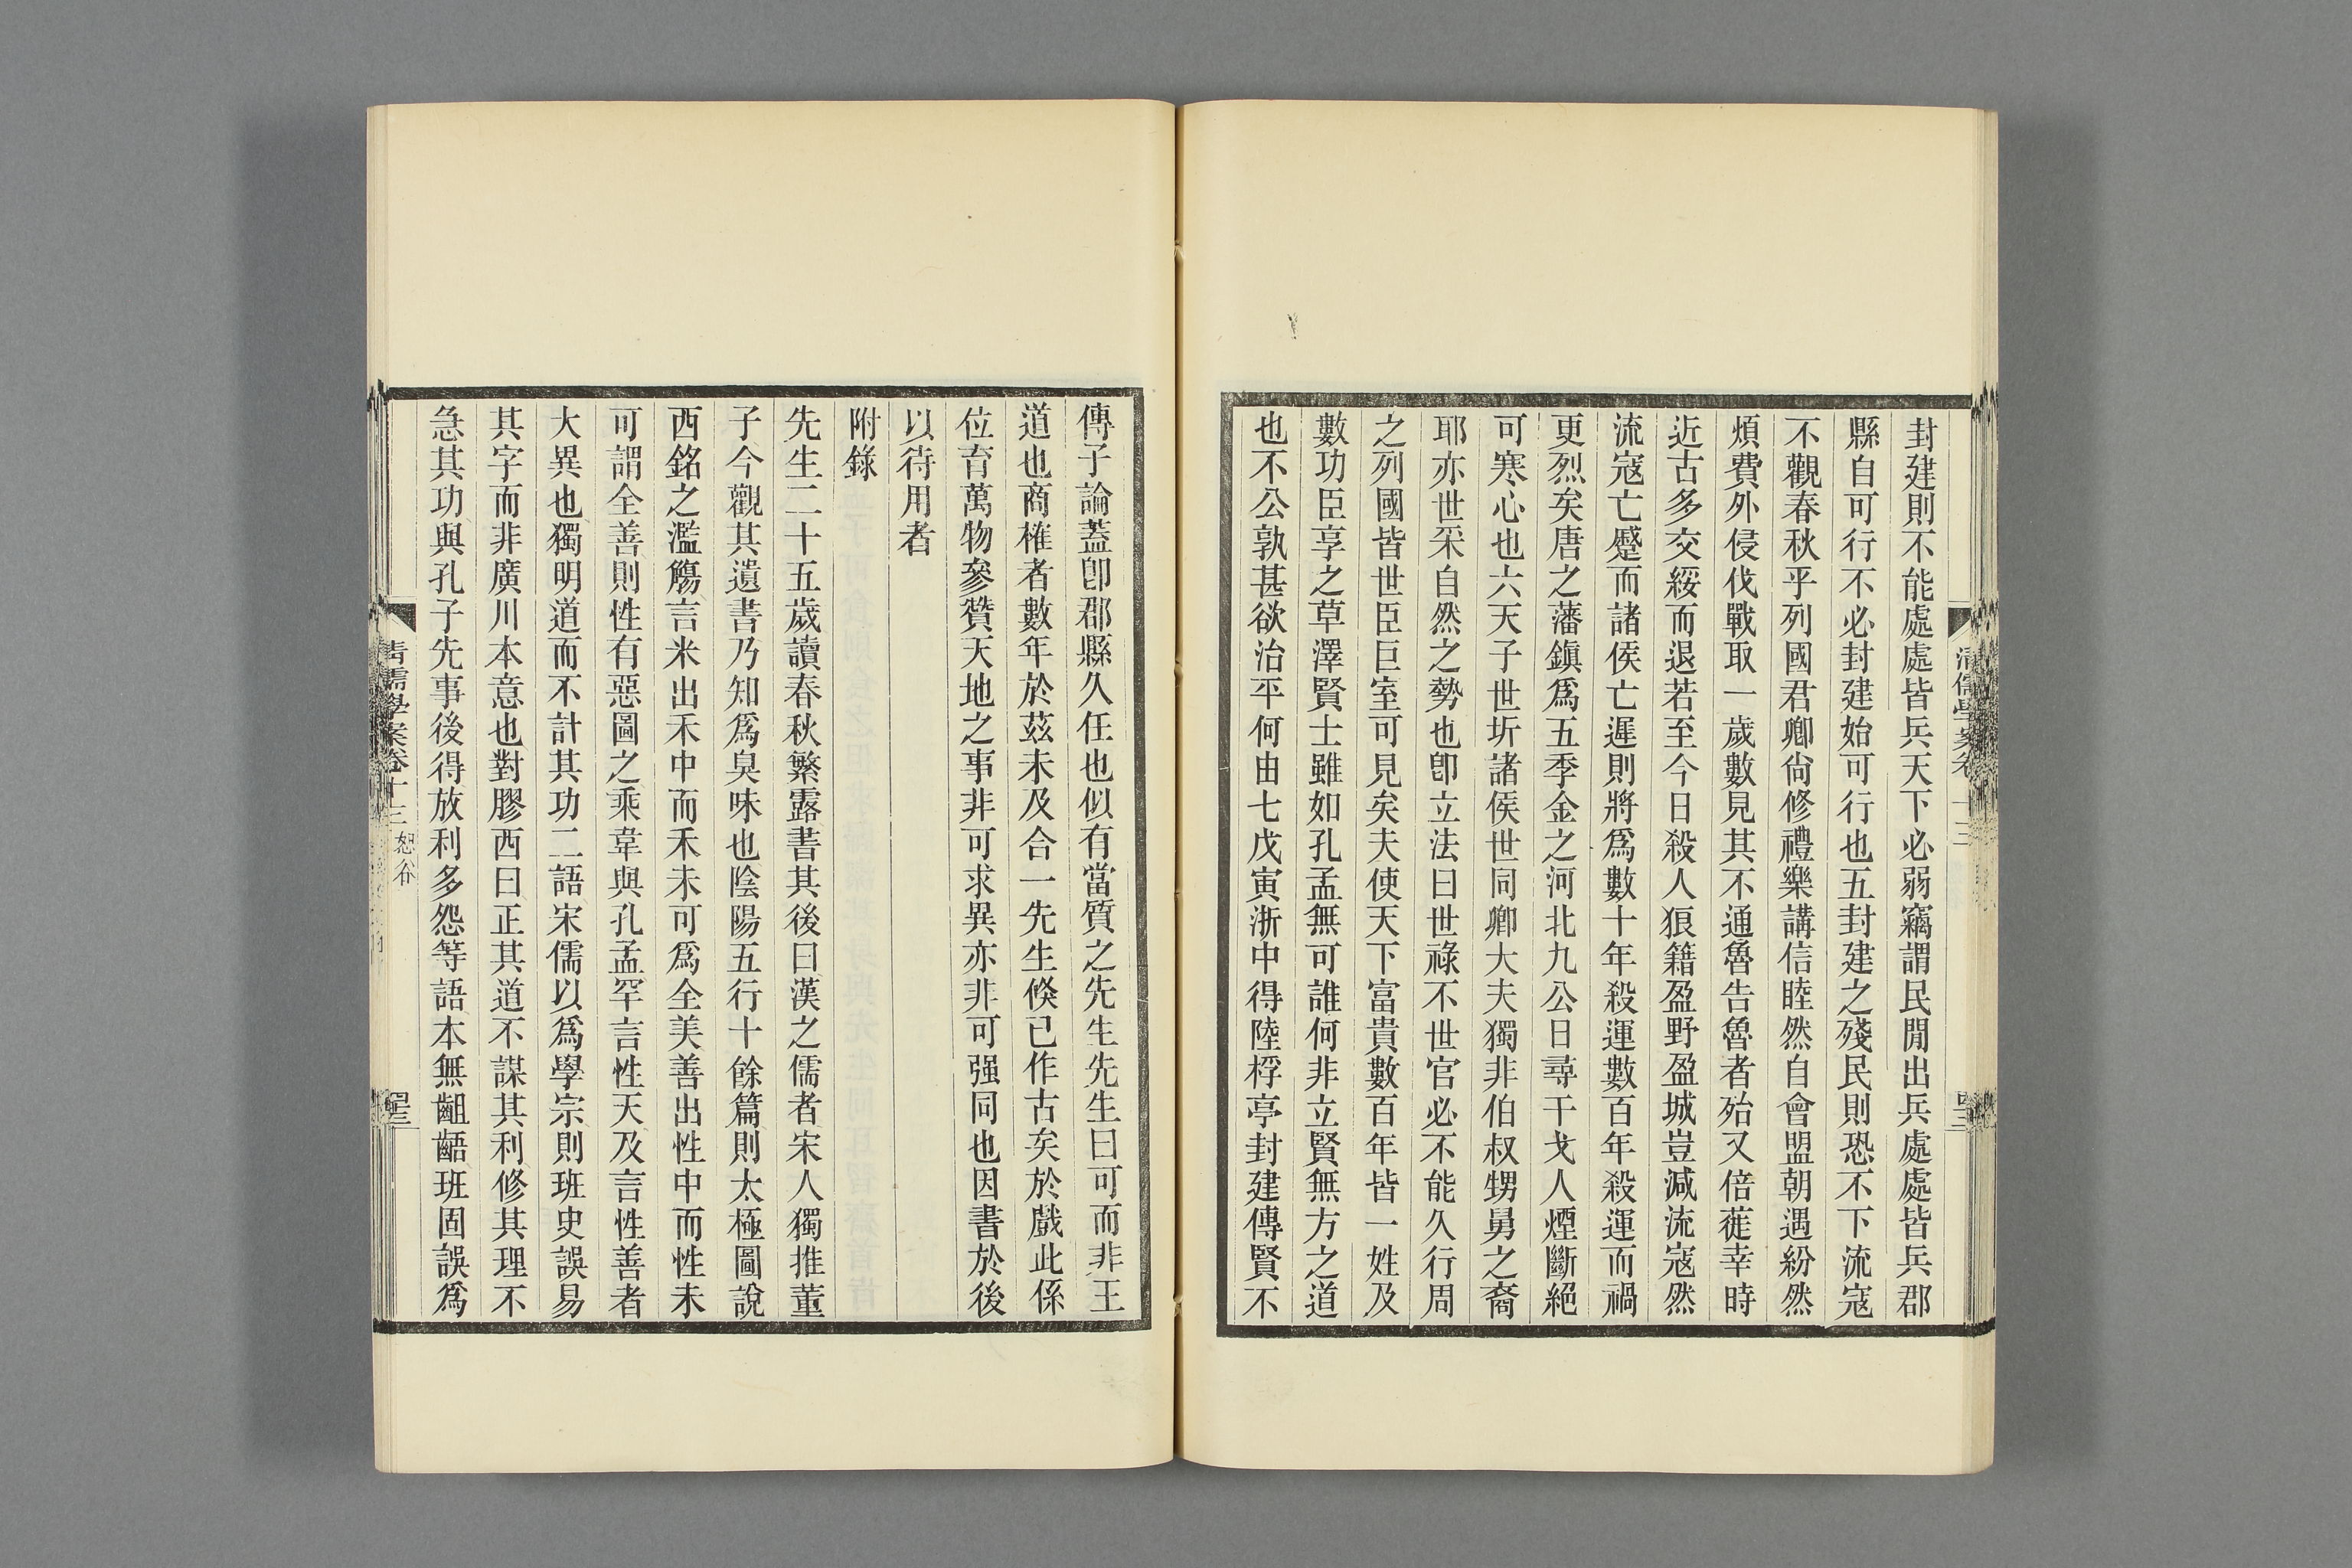 封建則不能處處皆兵天下必弱竊謂民閒出兵處處皆兵郡
縣自可行不必封建始可行也五封建之殘民則恐不下流寇
不觀春秋乎列國君卿尙修禮樂講信睦然自會盟朝遇紛然
煩費外侵伐戰取一歲數見其不通魯告魯者殆又倍蓰幸時
近古多交綏而退若至今日殺人狼籍盈野盈城豈減流寇然
流寇亡蹙而諸侯亡遲則將爲數十年殺運數百年殺運而禍
更烈矣唐之藩鎭爲五季金之河北九公日尋干戈人煙斷絕
可寒心也六天子世圻諸侯世同卿大夫獨非伯叔甥舅之裔
耶亦世采自然之勢也卽立法曰世祿不世官必不能久行周
之列國皆世臣巨室可見矣夫使天下富貴數百年皆一姓及
數功臣享之草澤賢士雖如孔孟無可誰何非立賢無方之道
也不公孰甚欲治平何由七戊寅浙中得陸桴亭封建傳賢不
清儒學案卷十三
傳子論蓋卽郡縣久任也似有當質之先生先生曰可而非王
道也商榷者數年於茲未及合一先生倐已作古矣於戲此係
位育萬物參贊天地之事非可求異亦非可强同也因書於後
以待用者
附錄
先生二十五歲讀春秋繁露書其後曰漢之儒者宋人獨推董
子今觀其遺書乃知爲臭味也陰陽五行十餘篇則太極圖說
西銘之濫觴言米出禾中而禾未可爲全美善出性中而性未
可謂全善則性有惡圖之乘韋與孔孟罕言性天及言性善者
大異也獨明道而不計其功二語宋儒以爲學宗則班史誤易
其字而非廣川本意也對膠西曰正其道不謀其利修其理不
急其功與孔子先事後得放利多怨等語本無齟齬班固誤爲
清儒學案卷十三 恕谷